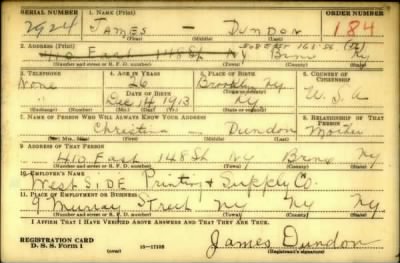 SERIAL NUMBER 1. NAME (Print) ORDER NUMBER
2924 JAMES — DUNDON 184
(First) (Middle) (Last)
2. ADDRESS (Print) 568 East 163 St.
410 East 148 St NY Bronx NY
(Number and street or R. F. D. number) (Town) (County) (State)
3. TELEPHONE 4. AGE IN YEARS 5. PLACE OF BIRTH 6. COUNTRY OF CITIZENSHIP
None 26 Brooklyn NY
DATE OF BIRTH (Town or county)
Dec 14 1913 NY U.S.A
(Exchange) (Number) (Mo.) (Day) (Yr.) (State or country)
7. NAME OF PERSON WHO WILL ALWAYS KNOW YOUR ADDRESS 8. RELATIONSHIP OF THAT PERSON
Christina — Dundon Mother
(Mr., Mrs., Miss) (First) (Middle) (Last)
9. ADDRESS OF THAT PERSON
410 East 148 St NY Bronx NY
(Number and street or R. F. D. number) (Town) (County) (State)
10. EMPLOYER'S NAME
West SIDE Printing & Supply Co.
11. PLACE OF EMPLOYMENT OR BUSINESS
9 Murray Street NY NY NY
(Number and street or R. F. D. number) (Town) (County) (State)
I AFFIRM THAT I HAVE VERIFIED ABOVE ANSWERS AND THAT THEY ARE TRUE.
REGISTRATION CARD
D. S. S. Form 1 (over) 16—17105 James Dundon
(Registrant's signature)